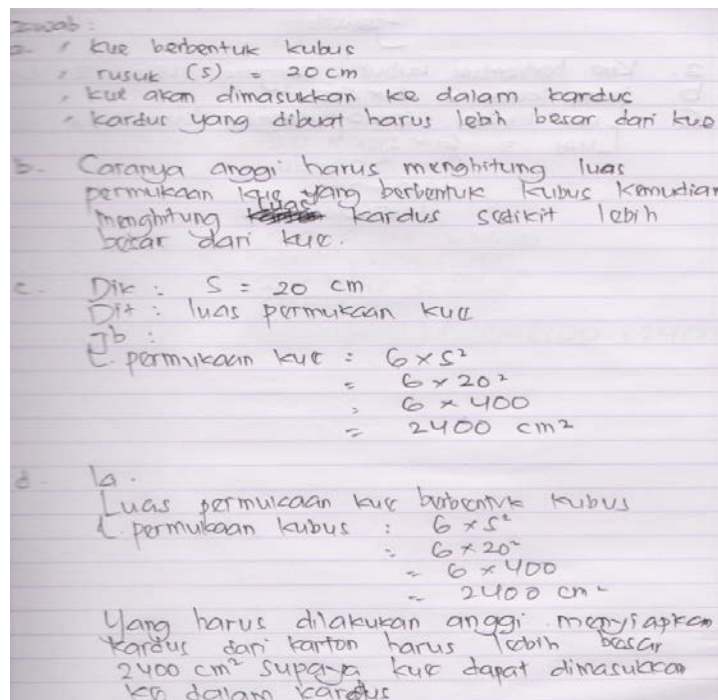 Jawab :
a. , kue berbentuk kubus
, rusuk (s) = 20 cm
, kue akan dimasukkan ke dalam kardus
, kardus yang dibuat harus lebih besar dari kue
b. Caranya anggi harus menghitung luas
permukaan kue yang berbentuk kubus kemudian
menghitung luas kardus sedikit lebih
besar dari kue.
c. Dik : S = 20 cm
Dit : luas permukaan kue
Jb :
L. permukaan kue = 6 x s²
= 6 x 20²
= 6 x 400
= 2400 cm²
d. Ia.
Luas permukaan kue berbentuk kubus
L. permukaan kubus : 6 x s²
= 6 x 20²
= 6 x 400
= 2400 cm²
Yang harus dilakukan anggi menyiapkan
kardus dari karton harus lebih besar
2400 cm² supaya kue dapat dimasukkan
ke dalam kardus